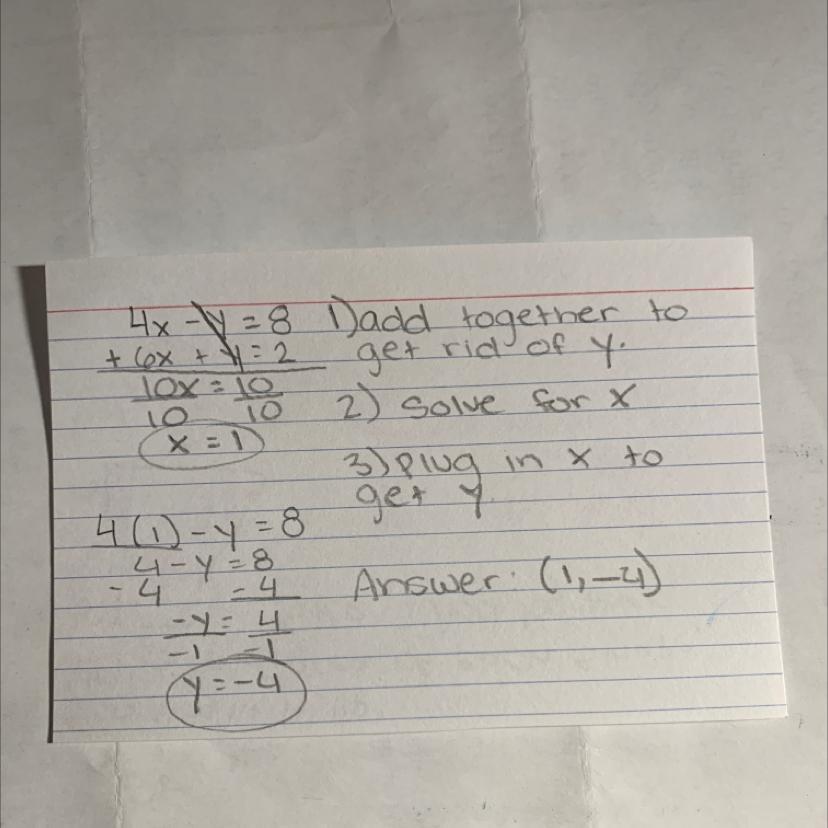 4x - y = 8
+ 6x + y = 2
10x = 10
10 10
x = 1
1) add together to
get rid of y.
2) Solve for x
3) Plug in x to
get y
4(1) - y = 8
4 - y = 8
- 4 - 4
-y = 4
-1 -1
y = -4
Answer: (1, -4)